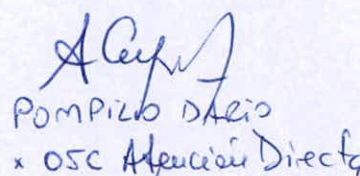 POMPILIO DARIO
x OSC Atención Directa